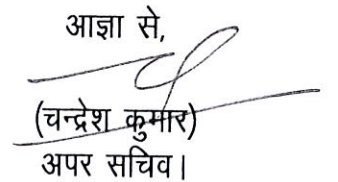 आज्ञा से,
(चन्द्रेश कुमार)
अपर सचिव।